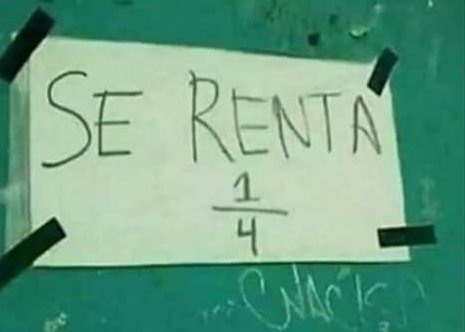 SE RENTA
1/4